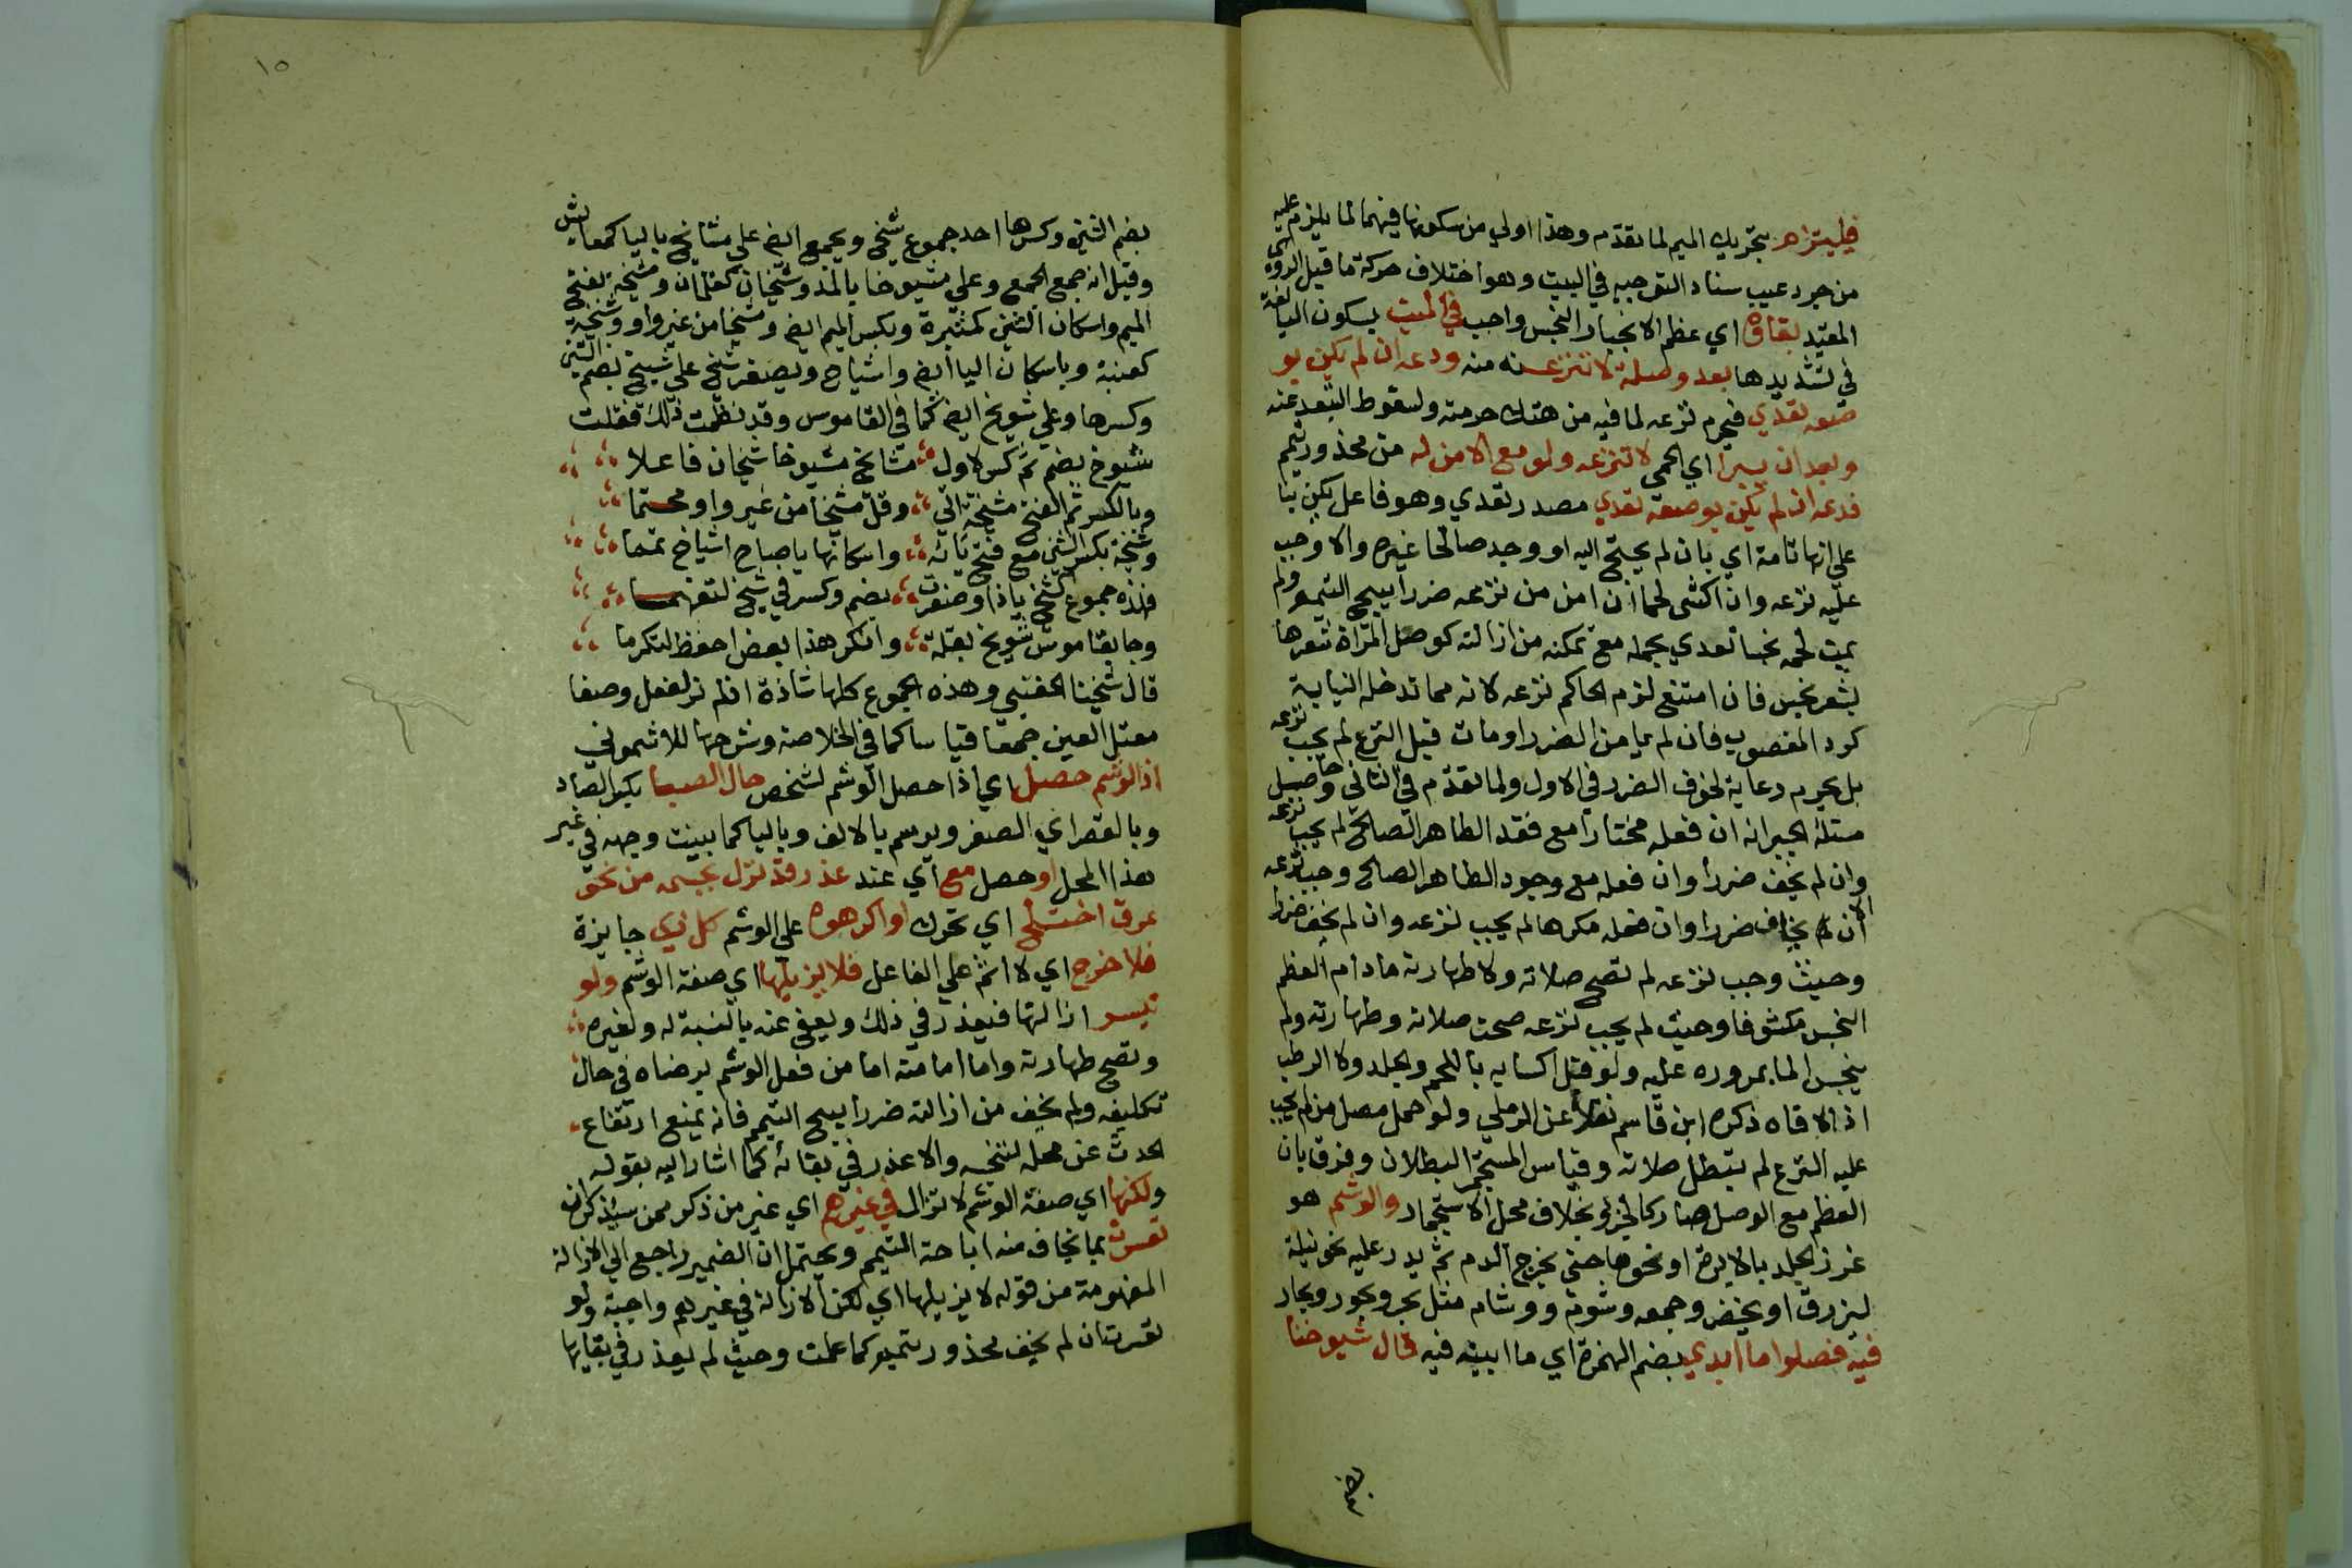 فليتزام بتحريك الميم لما تقدم وهذا اولي من سكونها فيهما لما يلزم عليه
من جرد عيب سناد التوجيه في البيت وهو اختلاف حركة ما قبل الروي
المقيد بقاؤه اي عظم الانجبار النجس واجب في الميت بسكون اليا لغة
في تشديدها بعد وصله لا تنزعنه منه ودعه ان لم يكن بو
ضعه تعدي فيحرم نزعه لما فيه من هتك حرمته ولسقوط التعبد عنه
وبعد ان يبرا اي الحي لا تنزعه ولو مع الامن له من محذور تيمم
فدعه ان لم يكن بوضعه تعدي مصدر تعدي وهو فاعل يكن بنا
علي انها تامة اي بان لم يحتج اليه او وجد صالحا غيره والا وجب
عليه نزعه وان اكتسى لحما ان امن من نزعه ضررا يبيح التيمم ولم
يمت لحمه نجسا تعدي بحمله مع تمكنه من ازالته كوصل المراة شعرها
بشعر نجس فان امتنع لزم الحاكم نزعه لانه مما تدخله النيابة
كرد المغصوب فان لم يامن الضرر او مات قبل النزع لم يجب نزعه
بل يحرم رعاية لخوف الضرر في الاول ولما تقدم في الثاني وحاصل
مسئلة الجبر انه ان فعله مختارا مع فقد الطاهر الصالح لم يجب نزعه
وان لم يخف ضررا وان فعله مع وجود الطاهر الصالح وجب نزعه
الا ان يخاف ضررا وان فعله مكرها لم يجب نزعه وان لم يخف ضررا
وحيث وجب نزعه لم تصح صلاته ولا طهارته مادام العظم
النجس مكشوفا وحيث لم يجب نزعه صحت صلاته وطهارته ولم
ينجس الما بمروره عليه ولو قبل اكتسايه باللحم والجلد ولا الرطب
اذا لاقاه ذكره ابن قاسم نقلا عن الرملي ولو حمل مصل من لم يجب
عليه النزع لم تبطل صلاته وقياس المستجمر البطلان وفرق بان
العظم مع الوصل صار كالجزؤ بخلاف محل الاستجمار والوشم هو
غرز الجلد بالابرة او نحوها حتى يخرج الدم ثم يدر عليه نحو نيلة
ليزرق او يخضر وجمعه وشوم ووشام مثل بحر وبحور وبحار
فيه فصلوا ما ابدي بضم الهمزة اي ما ابينه فيه قال شيوخنا
بضم
١٥
بضم الشين وكسرها احد جموع شيخ ويجمع ايض علي مشايخ باليا كمعايش
وقيل انه جمع الجمع وعلي مشيوخا بالمد وشيخان كغلمان ومشيخة بفتح
الميم واسكان الشين كمتيرة وبكسر الميم ايض ومشيخا من غير واو وشيخة
كعنبة وباسكان اليا ايض واشياخ ويصغر شيخ علي شييخ بضم الشين
وكسرها وعلي شويخ ايض كما في القاموس وقد نظمت ذلك فقلت
شيوخ بضم ثم كسر لاول مشايخ مشيوخا شيخان فاعلا
وبالكسر ثم الفتح مشيخة اتي وقل مشيخا من غير واو محتما
وشيخة بكسر الشين مع فتح يائه واسكانها يا صباح اشياخ تمما
فهذه جموع الشيخ يا ذا وصغرت بضم وكسر في شييخ لتفهما
وجا بقاموس شويخ بقلة وانكر هذا بعض احفظ لتكرما
قال شيخنا الحفني وهذه الجموع كلها شاذة اذ لم نر لفعل وصفا
معتل العين جمعا قياسا كما في الخلاصة وشرحها للاشموني
اذ الوشم حصل اي اذا حصل الوشم لشخص حال الصبا بكسر الصاد
وبالقصر اي الصغر ويرسم بالالف وباليا كما بينت وجهه في غير
هذا المحل او حصل مع اي عند عذر قد نزل بجسمه من نحو
عرق اختلج اي تحرك او اكرهوه علي الوشم كل ذي جايزة
فلا حرج اي لا اثم علي الفاعل فلا يزيلها اي صفة الوشم ولو
تيسر ازالتها فيعذر في ذلك ويعفي عنه بالنسبة له ولغيره
وتصح طهارته واما امامته اما من فعل الوشم برضاه في حال
تكليفه ولم يخف من ازالته ضررا يبيح التيمم فانه يمنع ارتفاع
الحدث عن محله لتنجسه والا عذر في بقائه كما اشار اليه بقوله
ولكنها اي صفة الوشم لا تزال في غيرهم اي غير من ذكر ممن سيذكر ان
تعسرت بما يخاف منه اباحة التيمم ويحتمل ان الضمير راجع الي الازالة
المفهومة من قوله لا يزيلها اي لكن الازالة في غيرهم واجبة ولو
تعسرت ان لم يخف محذور تيمم كما علمت وحيث لم يعذر في بقايها